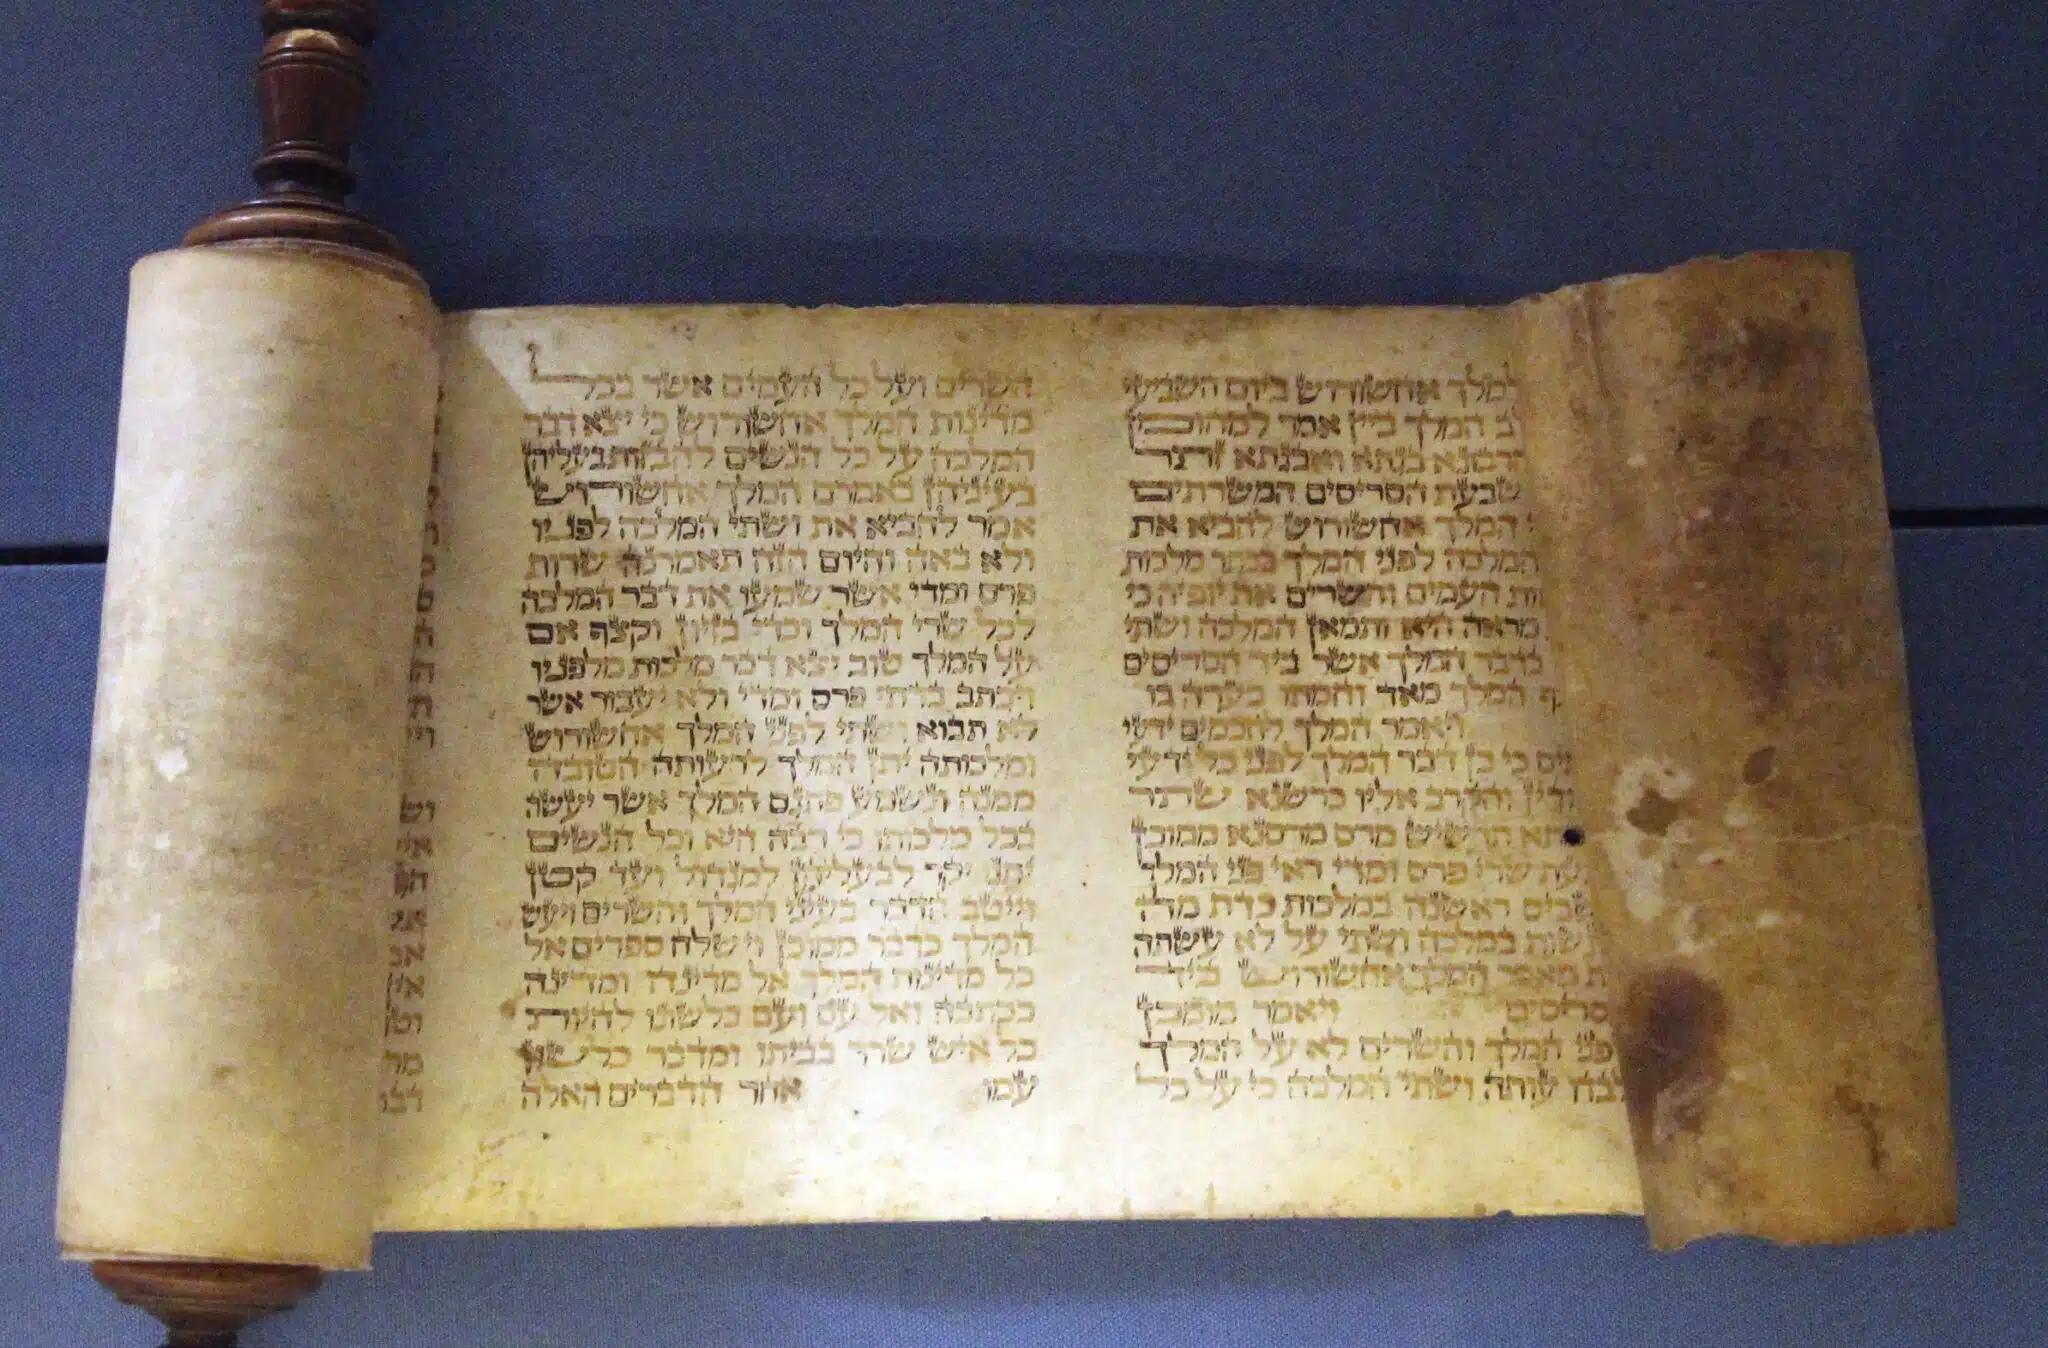 למלך אחשורוש ביום השביעי
המלך ביין אמר למהומן
בגתא ואבגתא זתר
שבעת הסריסים המשרתים
המלך אחשורוש להביא את
המלכה לפני המלך בכתר מלכות
העמים והשרים את יופיה כי
מראה היא ותמאן המלכה ושתי
בדבר המלך אשר ביד הסריסים
המלך מאד וחמתו בערה בו
ויאמר המלך לחכמים ידעי
כי כן דבר המלך לפני כל ידעי
ודין והקרב אליו כרשנא שתר
תרשיש מרס מרסנא ממוכן
שרי פרס ומדי ראי פני המלך
ראשנה במלכות כדת מה
במלכה ושתי על לא עשתה
מאמר המלך אחשורוש ביד
ויאמר מומכן
המלך והשרים לא על המלך
עותה ושתי המלכה כי על כל
השרים ועל כל העמים אשר בכל
מדינות המלך אחשורוש כי יצא דבר
המלכה על כל הנשים להבזות בעליהן
בעיניהן באמרם המלך אחשורוש
אמר להביא את ושתי המלכה לפניו
ולא באה והיום הזה תאמרנה שרות
פרס ומדי אשר שמעו את דבר המלכה
לכל שרי המלך וכדי בזיון וקצף אם
על המלך טוב יצא דבר מלכות מלפניו
ויכתב בדתי פרס ומדי ולא יעבור אשר
לא תבוא ושתי לפני המלך אחשורוש
ומלכותה יתן המלך לרעותה הטובה
ממנה ונשמע פתגם המלך אשר יעשה
בכל מלכותו כי רבה היא וכל הנשים
יתנו יקר לבעליהן למגדול ועד קטן
וייטב הדבר בעיני המלך והשרים ויעש
המלך כדבר ממוכן וישלח ספרים אל
כל מדינות המלך אל מדינה ומדינה
ככתבה ואל עם ועם כלשונו להיות
כל איש שרר בביתו ומדבר כלשון
עמו אחר הדברים האלה